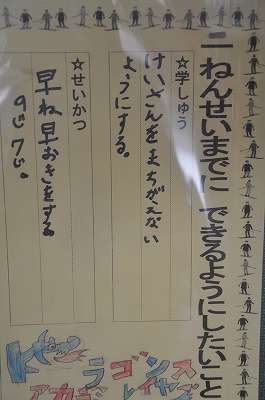 二ねんせいまでに できるようにしたいこと
☆学しゅう
けいさんをまちがえない
ようにする。
☆せいかつ
早ね早おきをする
9じ7じ。